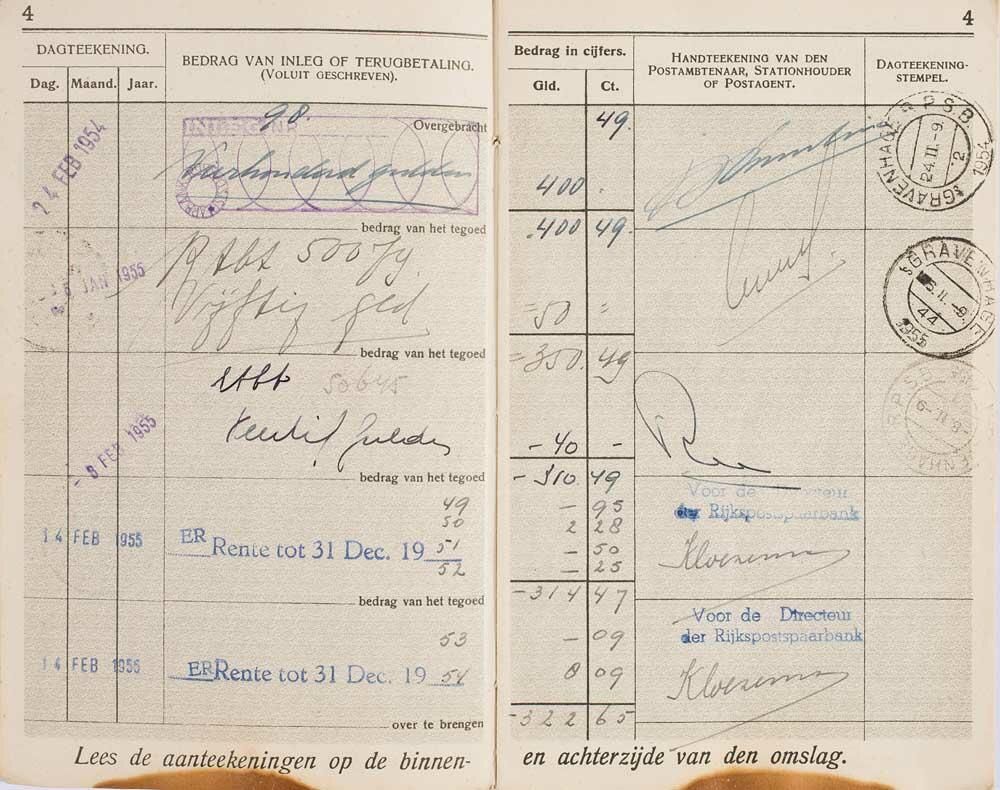 4
DAGTEEKENING.
Dag. Maand. Jaar.
BEDRAG VAN INLEG OF TERUGBETALING.
(VOLUIT GESCHREVEN).
24 FEB 1954
98.
INLEG NR
Overgebracht
Vierhonderd gulden
bedrag van het tegoed
JAN 1955
Rtbt 500
Vijftig gld
bedrag van het tegoed
- 8 FEB 1955
Rtbt 50645
Veertig gulden
bedrag van het tegoed
14 FEB 1955
ER Rente tot 31 Dec. 19
49
50
51
52
bedrag van het tegoed
14 FEB 1955
ER Rente tot 31 Dec. 19
53
54
over te brengen
Lees de aanteekeningen op de binnen-
4
Bedrag in cijfers.
Gld. Ct.
HANDTEEKENING VAN DEN
POSTAMBTENAAR, STATIONHOUDER
OF POSTAGENT.
DAGTEEKENING-
STEMPEL.
49.
400 .
400 49.
=50 =
=350. 49
- 40 -
- 310 49
- 95
2 28
- 50
- 25
- 314 47
- 09
8 09
- 322 65
'SGRAVENHAGE R.P.S.B.
24.II.-9.
1954
2
'SGRAVENHAGE
.II.-9.
44
1955
R.P.S.
6-II
Voor de Directeur
der Rijkspostspaarbank
Kloezeman
Voor de Directeur
der Rijkspostspaarbank
Kloezeman
en achterzijde van den omslag.